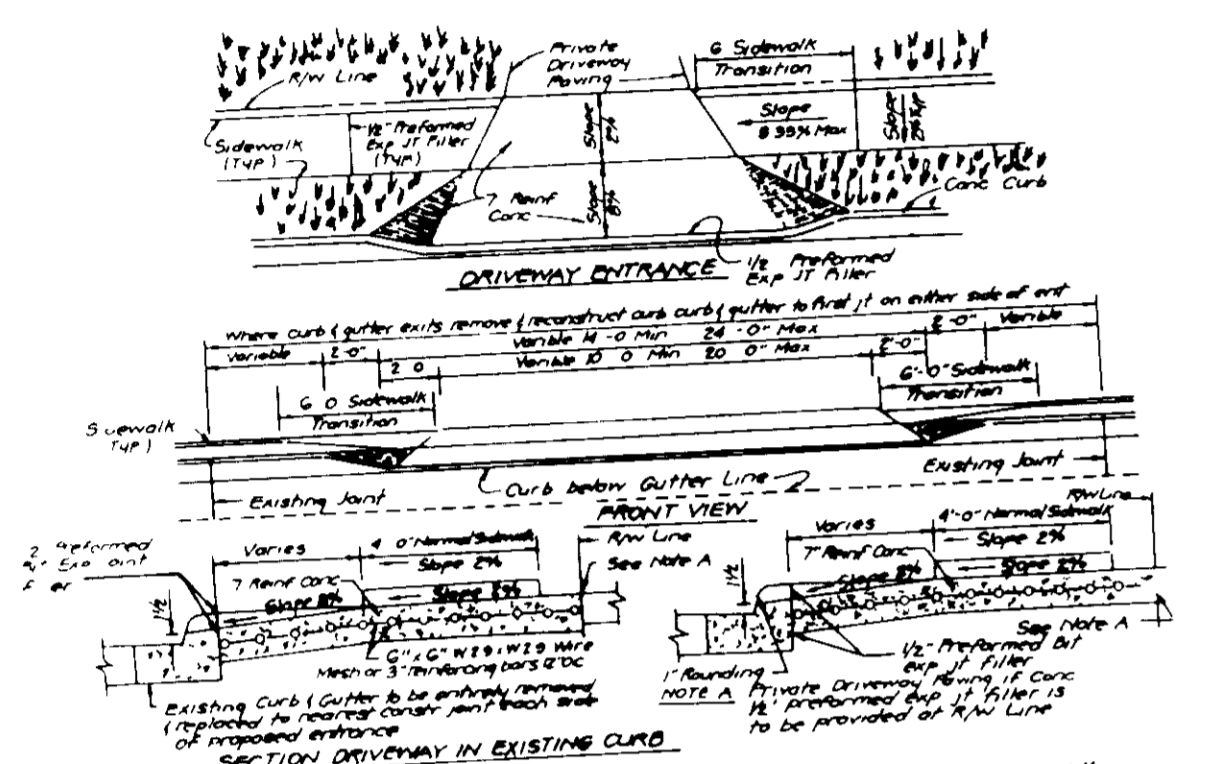 Private
Driveway
Paving
6 Sidewalk
Transition
R/W Line
Sidewalk
(Typ)
1/2" Preformed
Exp JT Filler
(Typ)
Slope
2%
Slope
8 33% Max
Slope
2% Typ
7 Reinf
Conc
Slope
8%
Conc Curb
DRIVEWAY ENTRANCE
1/2 Preformed
Exp JT Filler
Where curb & gutter exits remove & reconstruct curb curb & gutter to first jt on either side of ent
Variable
2 -0"
Varible 14 -0 Min 24 -0" Max
2 -0"
Variable
2 0
Varible 10 0 Min 20 0" Max
2'-0"
6 0 Sidewalk
Transition
6'-0" Sidewalk
Transition
Sidewalk
Typ)
Existing Joint
Curb below Gutter Line
Existing Joint
FRONT VIEW
R/W Line
2 Preformed
Exp Joint
Varies
4 0" Normal Sidewalk
Slope 2%
R/W Line
See Note A
7 Reinf Conc
Slope 8%
Slope 2%
1 1/2
6" x 6" W29 x W29 Wire
Mesh or 3" reinforcing bars 12" OC
Existing Curb & Gutter to be entirely removed
& replaced to nearest constr joint each side
of proposed entrance
SECTION DRIVEWAY IN EXISTING CURB
Varies
4'-0" Normal Sidewalk
7" Reinf Conc
Slope 2%
Slope 8%
Slope 2%
1 1/2
See Note A
1/2" Preformed Bit
exp jt filler
1" Rounding
NOTE A Private Driveway Paving if Conc
1/2" preformed exp jt filler is
to be provided at R/W Line